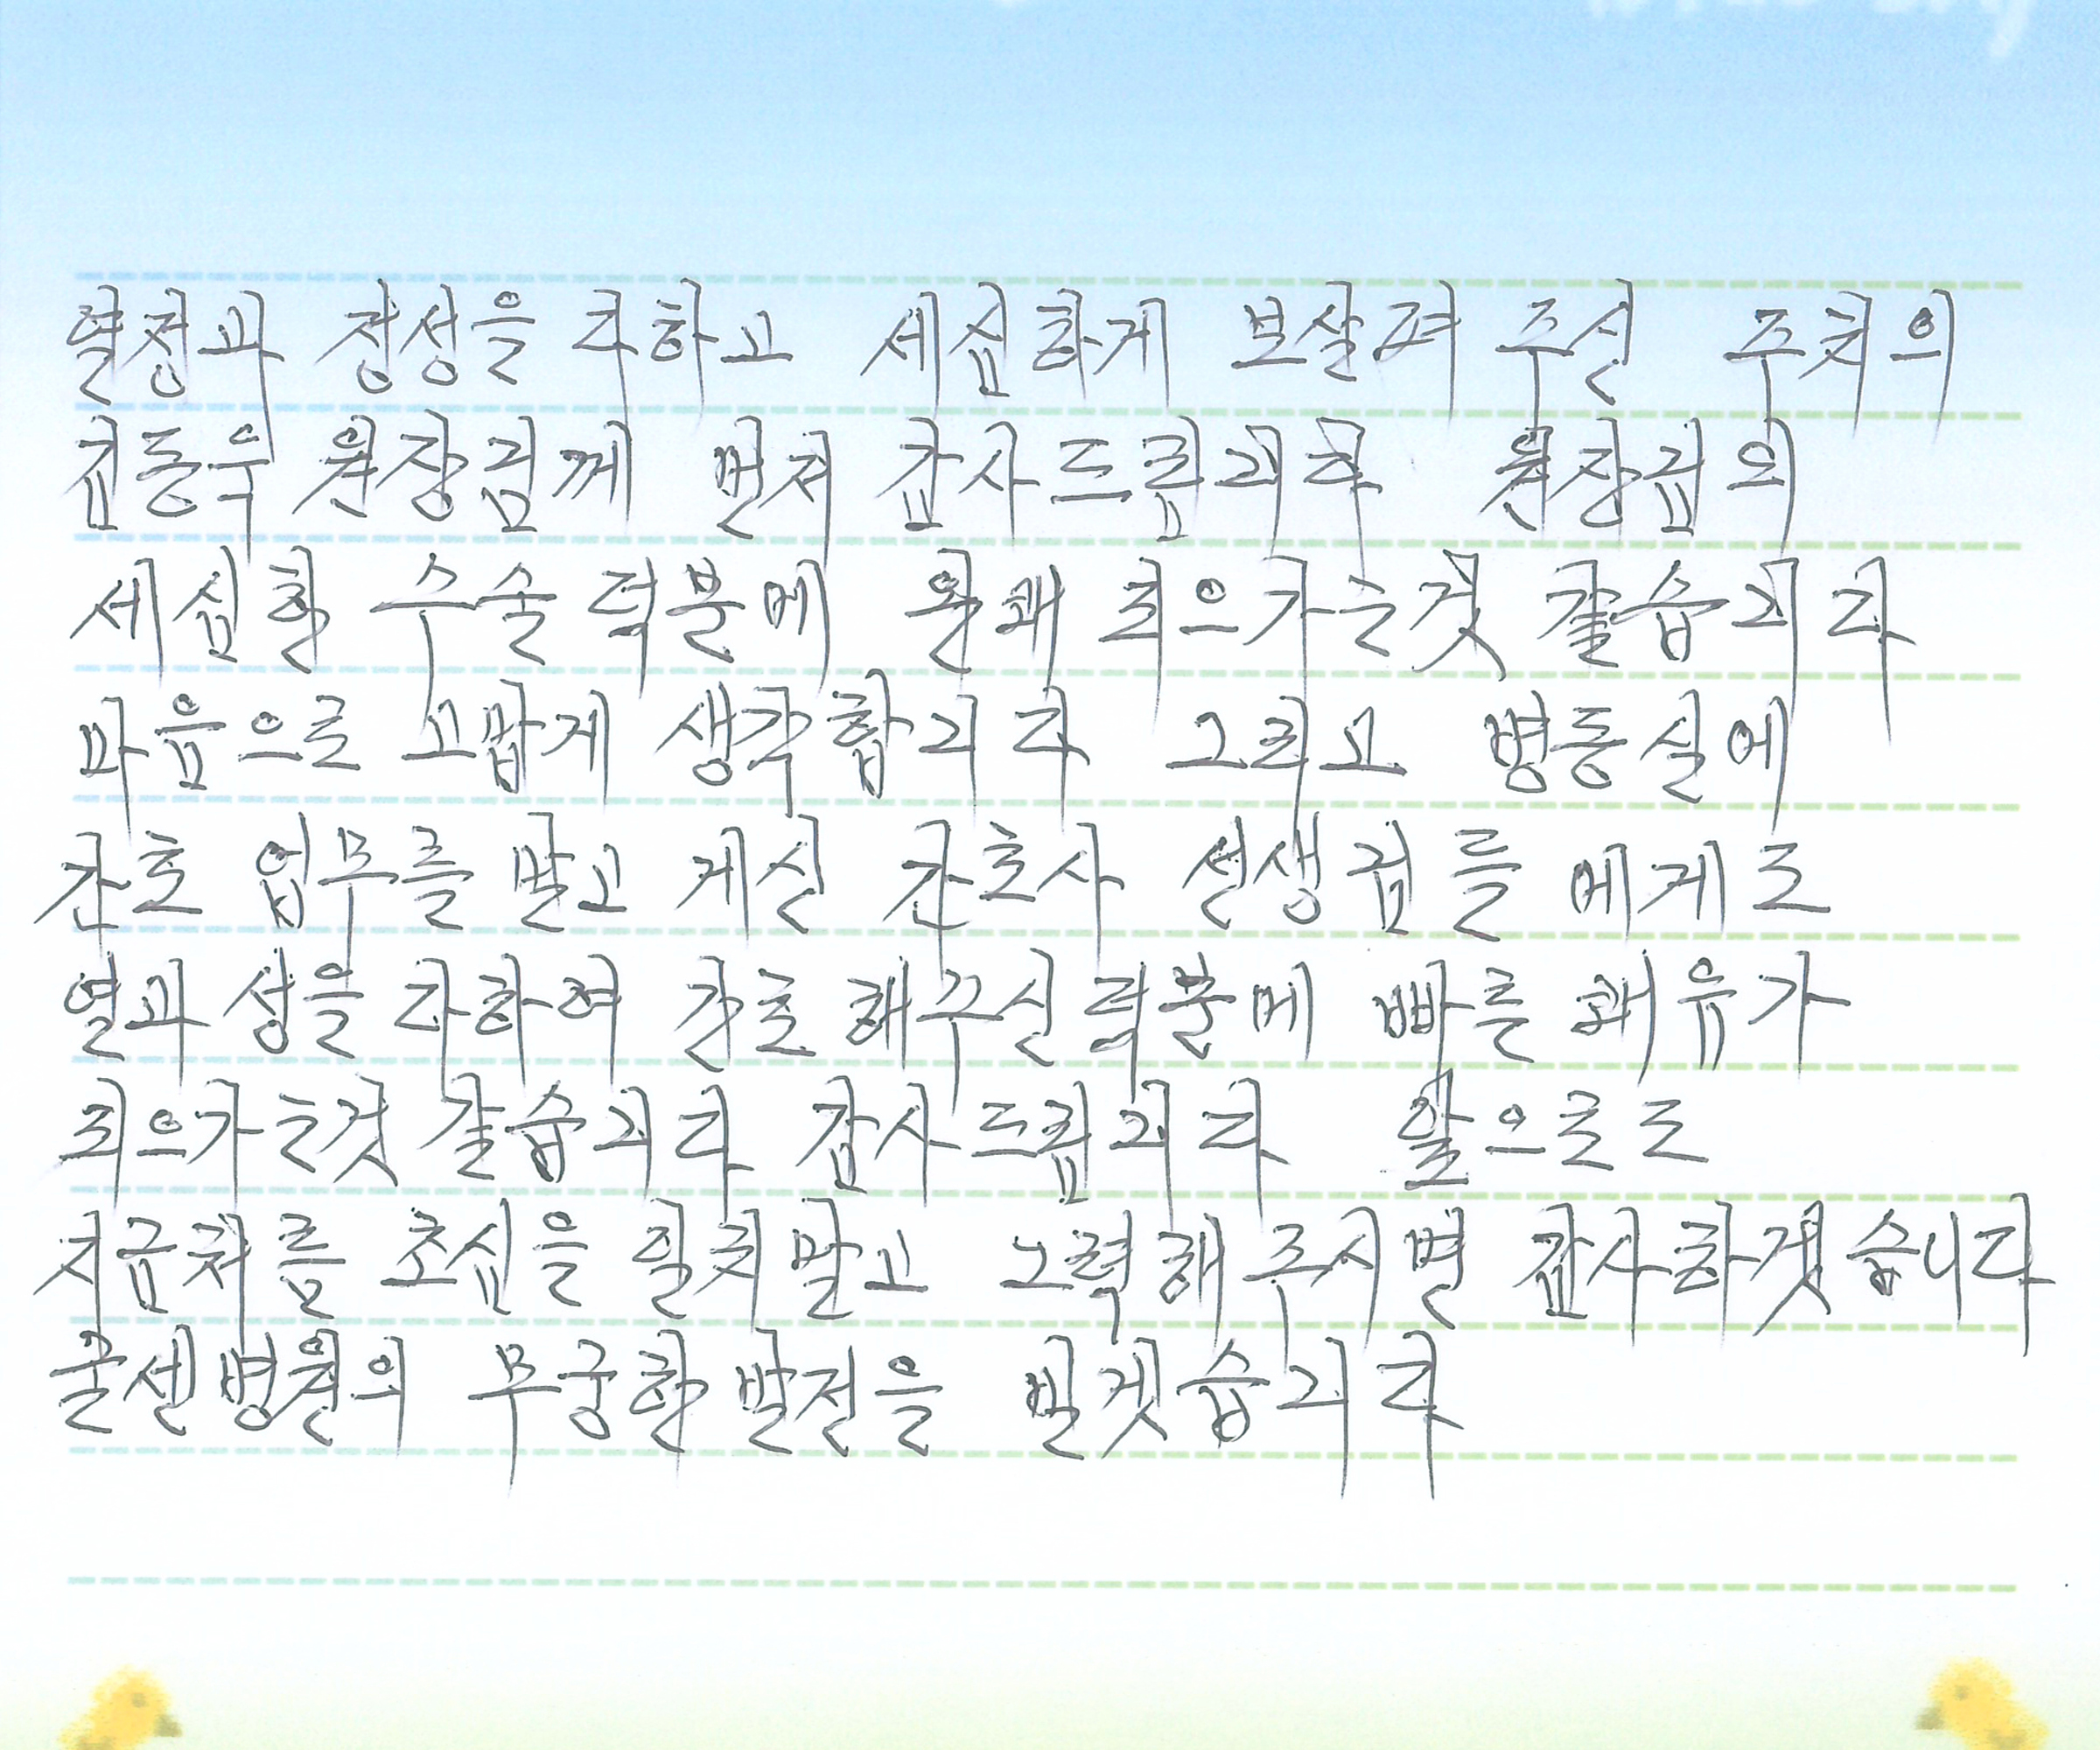 열정과 정성을 다하고 세심하게 보살펴 주신 주치의
김동욱 원장님께 먼저 감사드립니다 원장님의
세심한 수술 덕분에 완쾌 되으가는것 같습니다
마음으로 고맙게 생각합니다 그리고 병동실에
간호 업무를 맡고 계신 간호사 선생님들 에게도
열과 성을 다하여 간호 해주신 덕분에 빠른 쾌유가
되으가는것 같습니다 감사드립니다 앞으로도
지금처름 초심을 잃지말고 노력해 주시면 감사하겟습니다
굳센병원의 무궁한 발전을 빌겟습니다